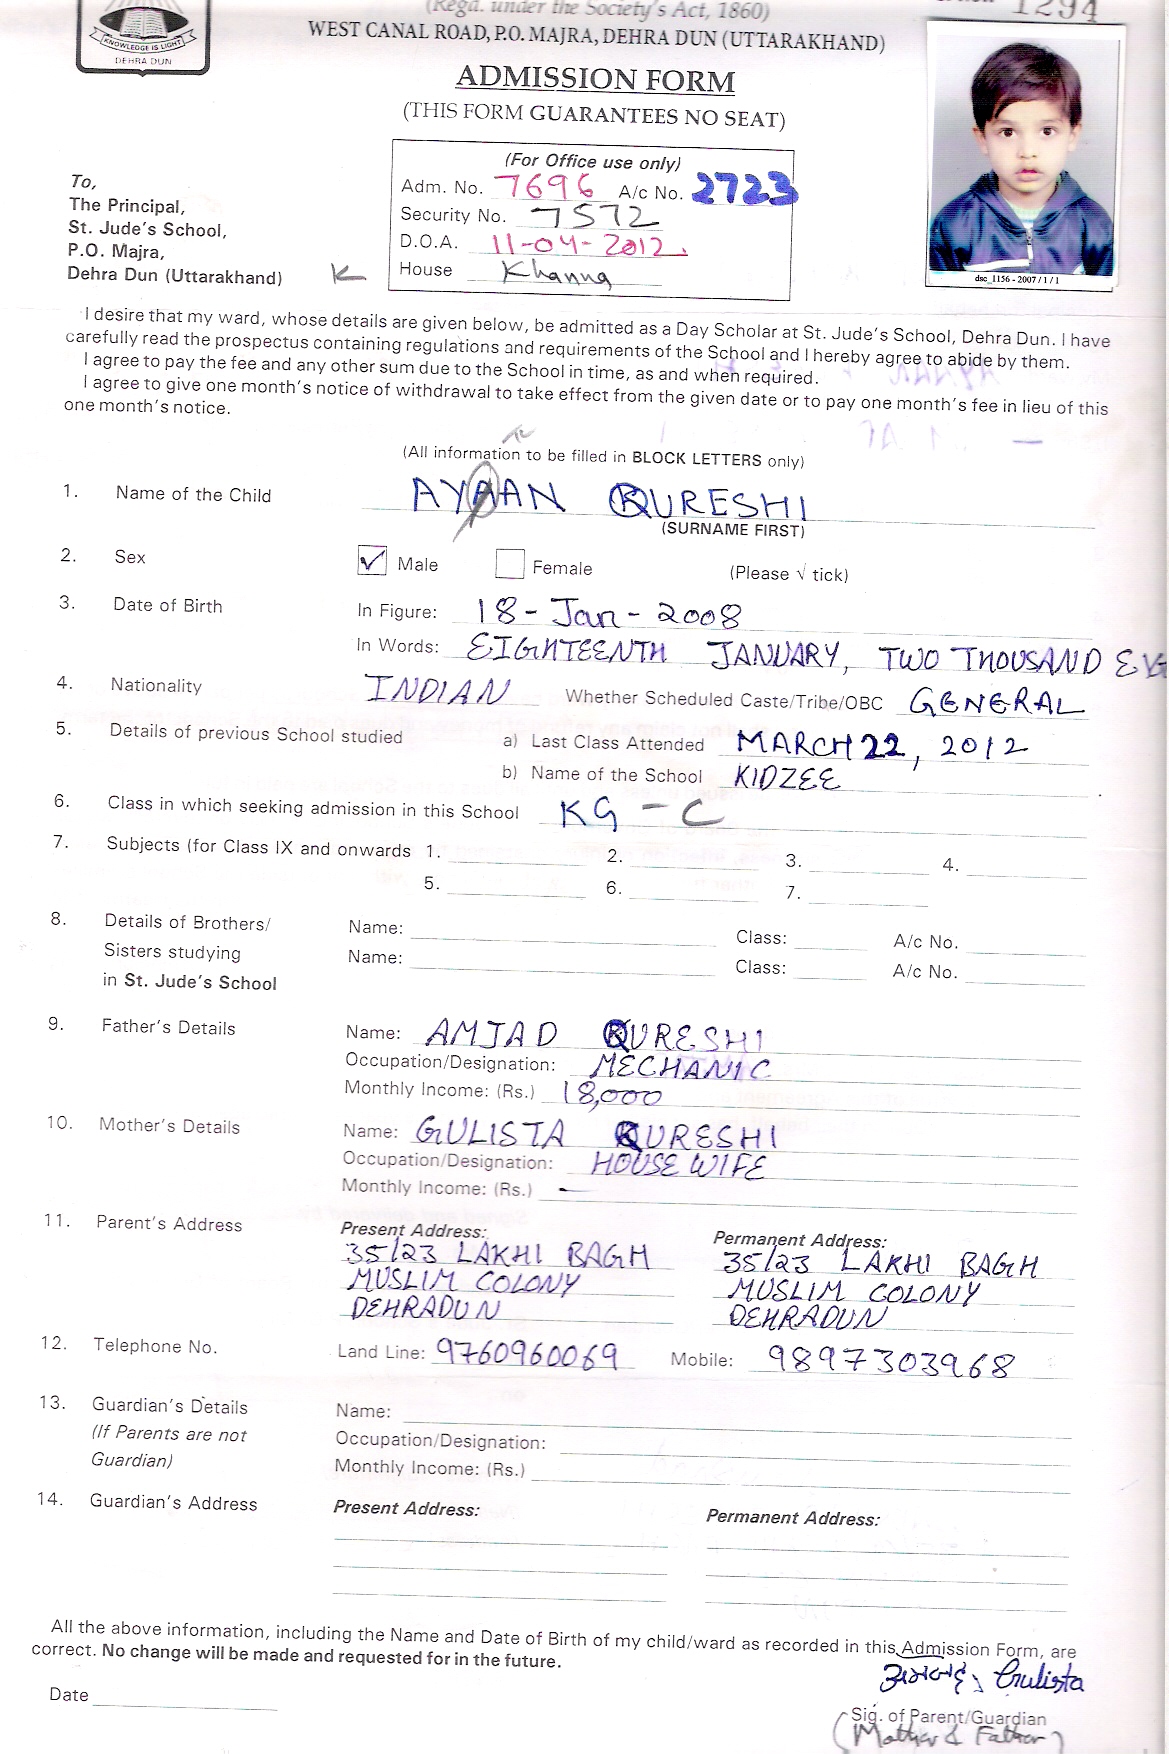 (Regd. under the Society's Act, 1860)
1294
WEST CANAL ROAD, P.O. MAJRA, DEHRA DUN (UTTARAKHAND)
KNOWLEDGE IS LIGHT
DEHRA DUN
ADMISSION FORM
(THIS FORM GUARANTEES NO SEAT)
(For Office use only)
Adm. No. 7696 A/c No. 2723
Security No. 7572
D.O.A. 11-04-2012.
House Khanna
To,
The Principal,
St. Jude's School,
P.O. Majra,
Dehra Dun (Uttarakhand)
K
dsc_1156 - 2007/1/1
I desire that my ward, whose details are given below, be admitted as a Day Scholar at St. Jude's School, Dehra Dun. I have
carefully read the prospectus containing regulations and requirements of the School and I hereby agree to abide by them.
I agree to pay the fee and any other sum due to the School in time, as and when required.
I agree to give one month's notice of withdrawal to take effect from the given date or to pay one month's fee in lieu of this
one month's notice.
(All information to be filled in BLOCK LETTERS only)
1. Name of the Child AYAAN QURESHI
(SURNAME FIRST)
2. Sex ✓ Male Female (Please √ tick)
3. Date of Birth In Figure: 18-Jan-2008
In Words: EIGHTEENTH JANUARY, TWO THOUSAND EIG
4. Nationality INDIAN Whether Scheduled Caste/Tribe/OBC GENERAL
5. Details of previous School studied a) Last Class Attended MARCH 22, 2012
b) Name of the School KIDZEE
6. Class in which seeking admission in this School KG - C
7. Subjects (for Class IX and onwards 1. 2. 3. 4.
5. 6. 7.
8. Details of Brothers/ Name: Class: A/c No.
Sisters studying Name: Class: A/c No.
in St. Jude's School
9. Father's Details Name: AMJAD QURESHI
Occupation/Designation: MECHANIC
Monthly Income: (Rs.) 18,000
10. Mother's Details Name: GULISTA QURESHI
Occupation/Designation: HOUSE WIFE
Monthly Income: (Rs.) -
11. Parent's Address Present Address: Permanent Address:
35/23 LAKHI BAGH 35/23 LAKHI BAGH
MUSLIM COLONY MUSLIM COLONY
DEHRADUN DEHRADUN
12. Telephone No. Land Line: 9760960069 Mobile: 9897303968
13. Guardian's Details Name:
(If Parents are not Occupation/Designation:
Guardian) Monthly Income: (Rs.)
14. Guardian's Address Present Address: Permanent Address:
All the above information, including the Name and Date of Birth of my child/ward as recorded in this Admission Form, are
correct. No change will be made and requested for in the future.
Gulista
Date
Sig. of Parent/Guardian
(Mother & Father)